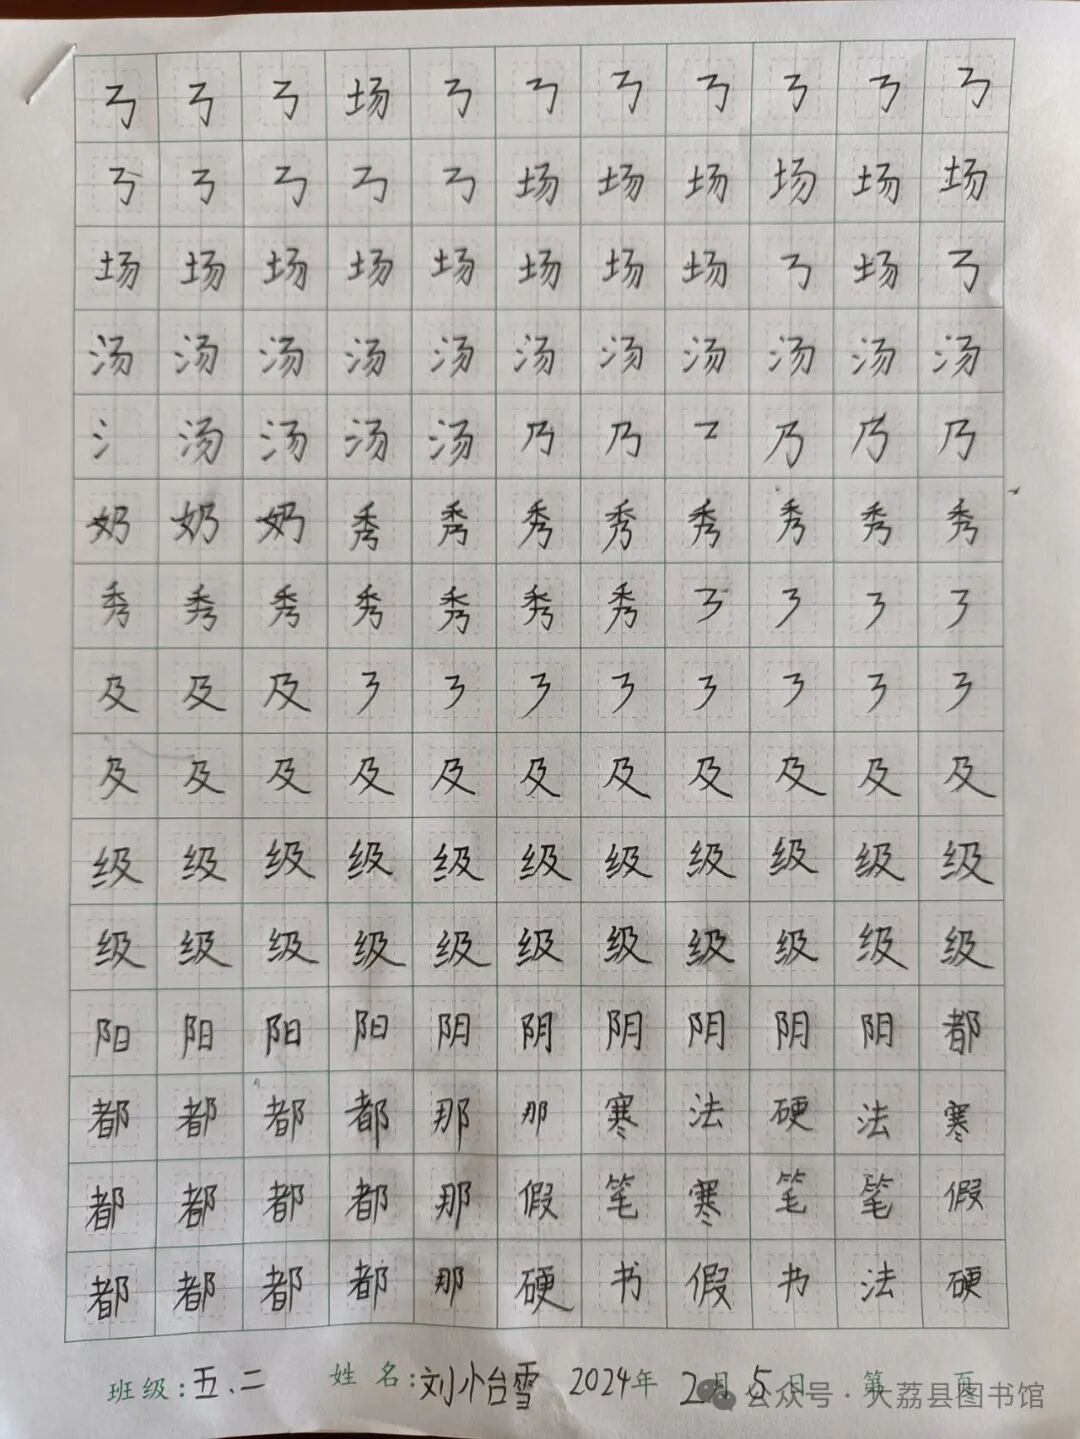 ㇋ ㇋ ㇋ 场 ㇋ ㇋ ㇋ ㇋ ㇋ ㇋ ㇋
㇋ ㇋ ㇋ ㇋ ㇋ 场 场 场 场 场 场
场 场 场 场 场 场 场 场 ㇋ 场 ㇋
汤 汤 汤 汤 汤 汤 汤 汤 汤 汤 汤
氵 汤 汤 汤 汤 乃 乃 乃 乃 乃
奶 奶 奶 秀 秀 秀 秀 秀 秀 秀 秀
秀 秀 秀 秀 秀 秀 秀 ㇋ ㇋ ㇋ ㇋
及 及 及 ㇋ ㇋ ㇋ ㇋ ㇋ ㇋ ㇋ ㇋
及 及 及 及 及 及 及 及 及 及 及
级 级 级 级 级 级 级 级 级 级 级
级 级 级 级 级 级 级 级 级 级 级
阳 阳 阳 阳 阴 阴 阴 阴 阴 阴 都
都 都 都 都 那 那 寒 法 硬 法 寒
都 都 都 都 那 假 笔 寒 笔 笔 假
都 都 都 都 那 硬 书 假 书 法 硬
班级:五.二 姓名:刘小台雪 2024年2月5日 第 页
公众号·大荔县图书馆